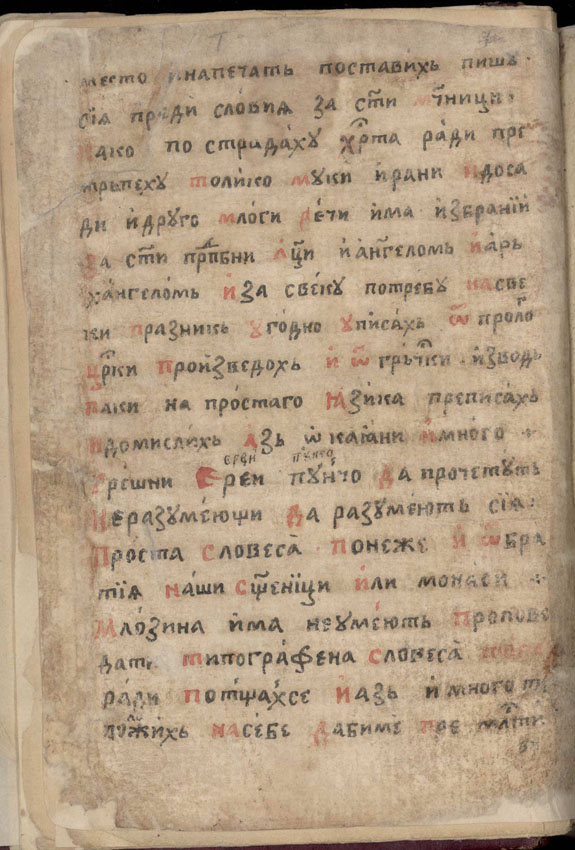 место и напечать поставихъ пишꙋ
сїѧ предисловиѧ за ст҃и мч҃ници
како по страдахꙋ хрⷭ҇та ради пре
трьпехꙋ толико мꙋки и҆ рани и҆ доса
ди и҆ дрꙋго млоги дѣти и҆ма и҆збранїй
За ст҃и прⷣпбни ѻ҆ц҃и и҆ а҆нг҃еломь и҆ а҆рь
ха́нгеломь И҆ за свекꙋ потребꙋ на све
ки празникь ꙋгодно ꙋписахь ѿ проло
црⷦ҇ки произведохь и҆ ѿ грьчⷭ҇ки и҆зводь
паки на простаго ꙗзика преписахь
и҆ домислихь а҆зь ѡ҆кааѝни и҆ много
грешни Ереи пꙋнчо да прочетꙋть
Неразꙋмеющи да разꙋмеють сїѧ
Проста словеса Понеже и҆ ѿ бра
тїѧ наши сщ҃еници или монаси
Млозина и҆ма не ꙋмеють пропове
дати типографена словеса
ради потщахсе и҆ азь и҆ много
ложихь на себе да би ме пре
ерѣи пꙋнчо